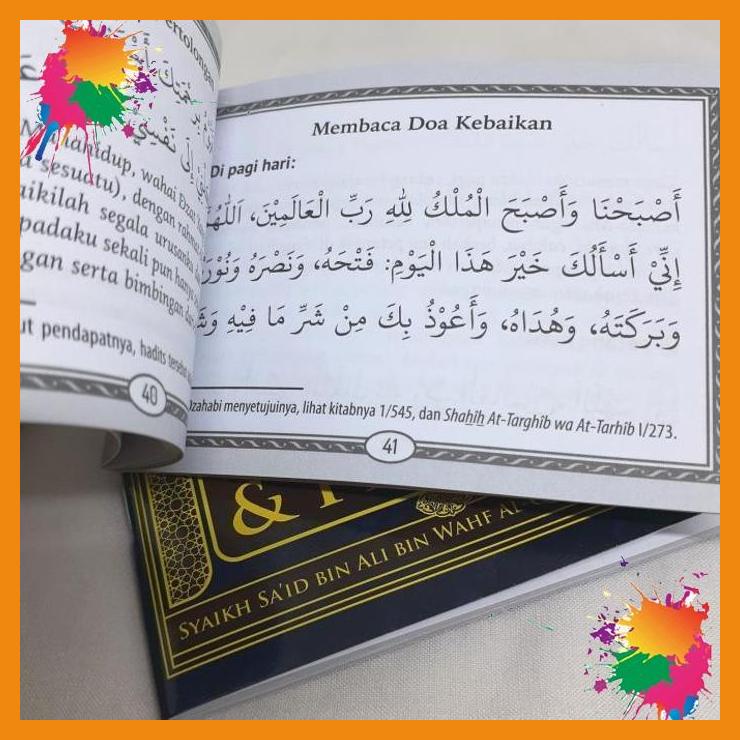 ertolongan
Mahahidup, wahai Dzat
sesuatu), dengan rahmat
aikilah segala urusanku
padaku sekali pun hanya
gan serta bimbingan dari
ut pendapatnya, hadits tersebut
40
Membaca Doa Kebaikan
Di pagi hari:
أَصْبَحْنَا وَأَصْبَحَ الْمُلْكُ لِلّٰهِ رَبِّ الْعَالَمِيْنَ، اَللّٰهُمَّ
إِنِّيْ أَسْأَلُكَ خَيْرَ هَذَا الْيَوْمِ: فَتْحَهُ، وَنَصْرَهُ وَنُوْرَهُ
وَبَرَكَتَهُ، وَهُدَاهُ، وَأَعُوْذُ بِكَ مِنْ شَرِّ مَا فِيْهِ
Dzahabi menyetujuinya, lihat kitabnya 1/545, dan Shahîh At-Targhîb wa At-Tarhîb I/273.
41
&
SYAIKH SA'ID BIN ALI BIN WAHF AL